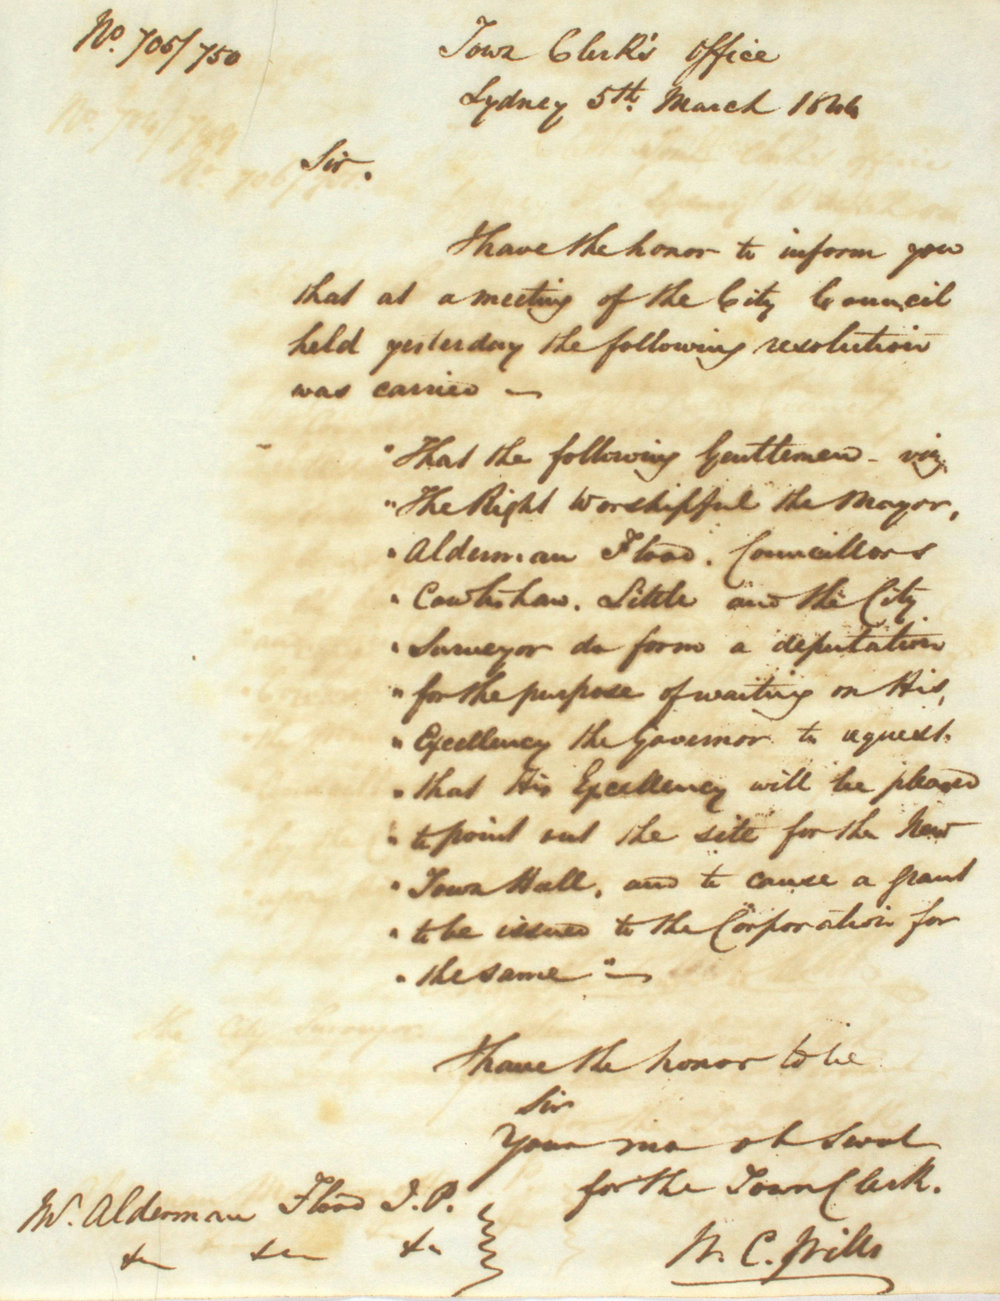 No. 706/750
Town Clerk's Office
Sydney 5th. March 1844
Sir.
I have the honor to inform you
that at a meeting of the City Council
held yesterday the following resolution
was carried —
"That the following Gentlemen - viz
"The Right Worshipful the Mayor,
"Alderman Flood, Councillors
"Cowlishaw, Little and the City
"Surveyor do form a deputation
"for the purpose of waiting on His,
"Excellency the Governor to request.
"that His Excellency will be pleased
"to point out the site for the New
"Town Hall, and to cause a grant
"to be issued to the Corporation for
"the same" —
I have the honor to be
Sir
Your mo ob Servt
for the Town Clerk.
W. C. Wills
Mr. Alderman Flood J.P.